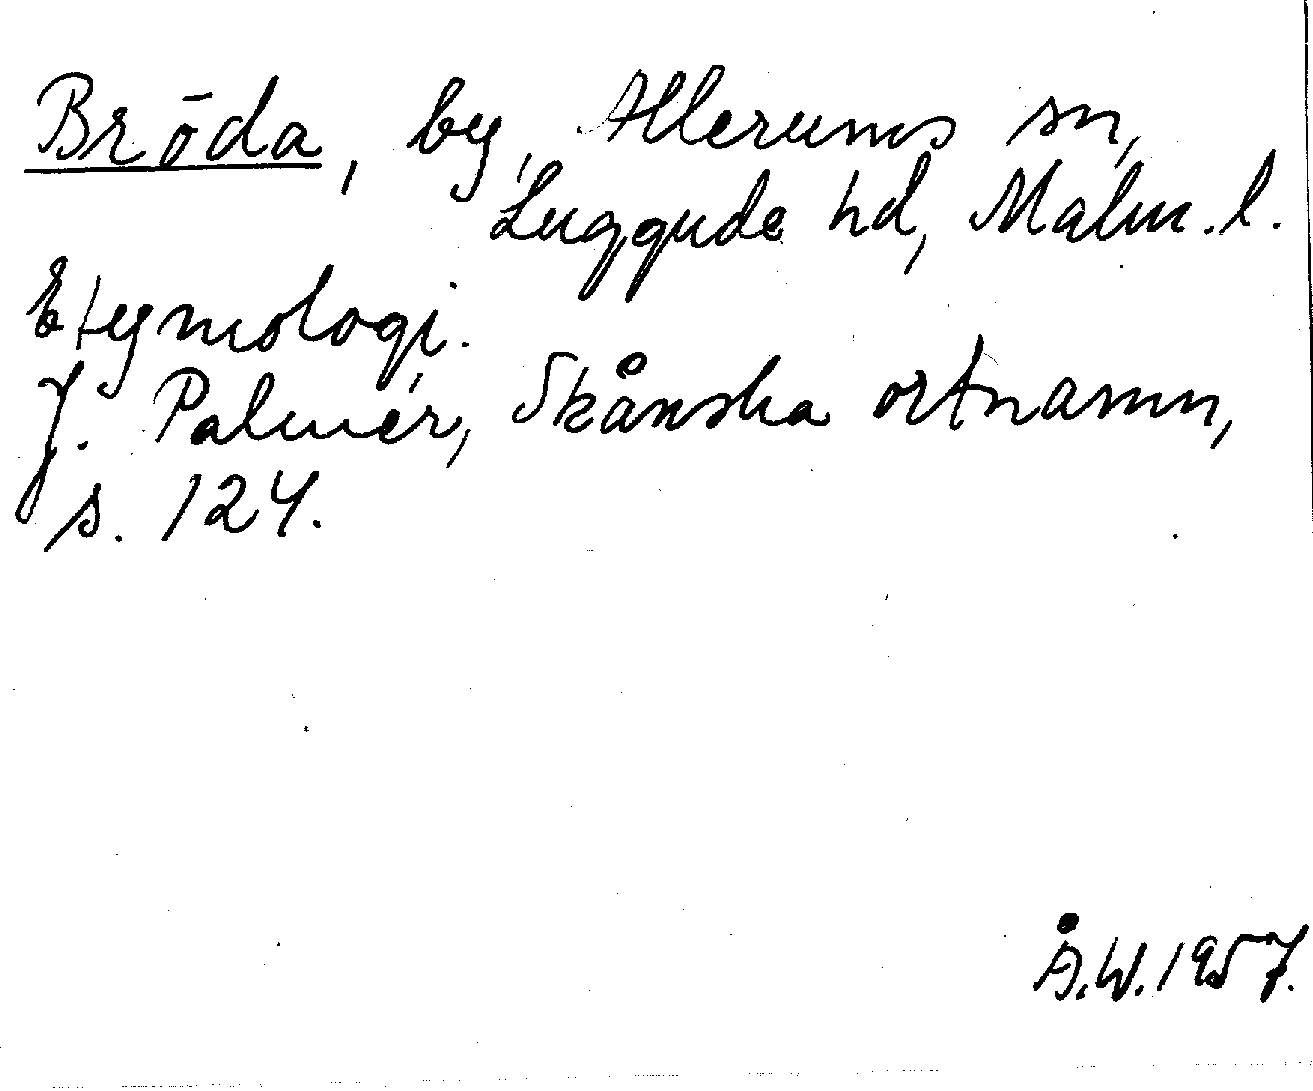 Bröda, by, Allerums sn,
Luggude hd, Malm. l.
Etymologi.
J. Palmér, Skånska ortnamn,
s. 124.
Å.W. 1957.